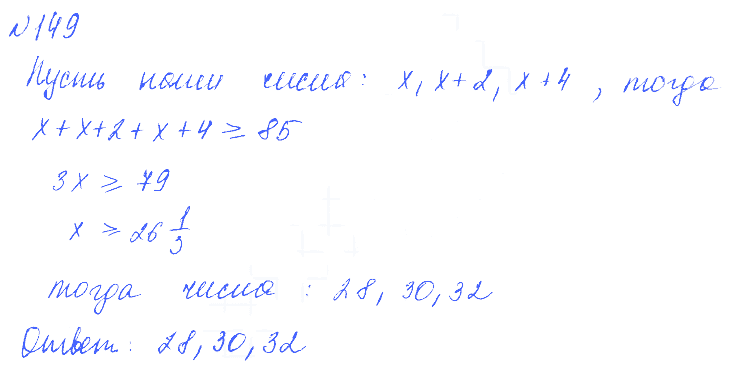 №149
Пусть наши числа: x, x+2, x+4, тогда
x+x+2+x+4 ≥ 85
3x ≥ 79
x ≥ 26 1/3
тогда числа: 28, 30, 32
Ответ: 28, 30, 32